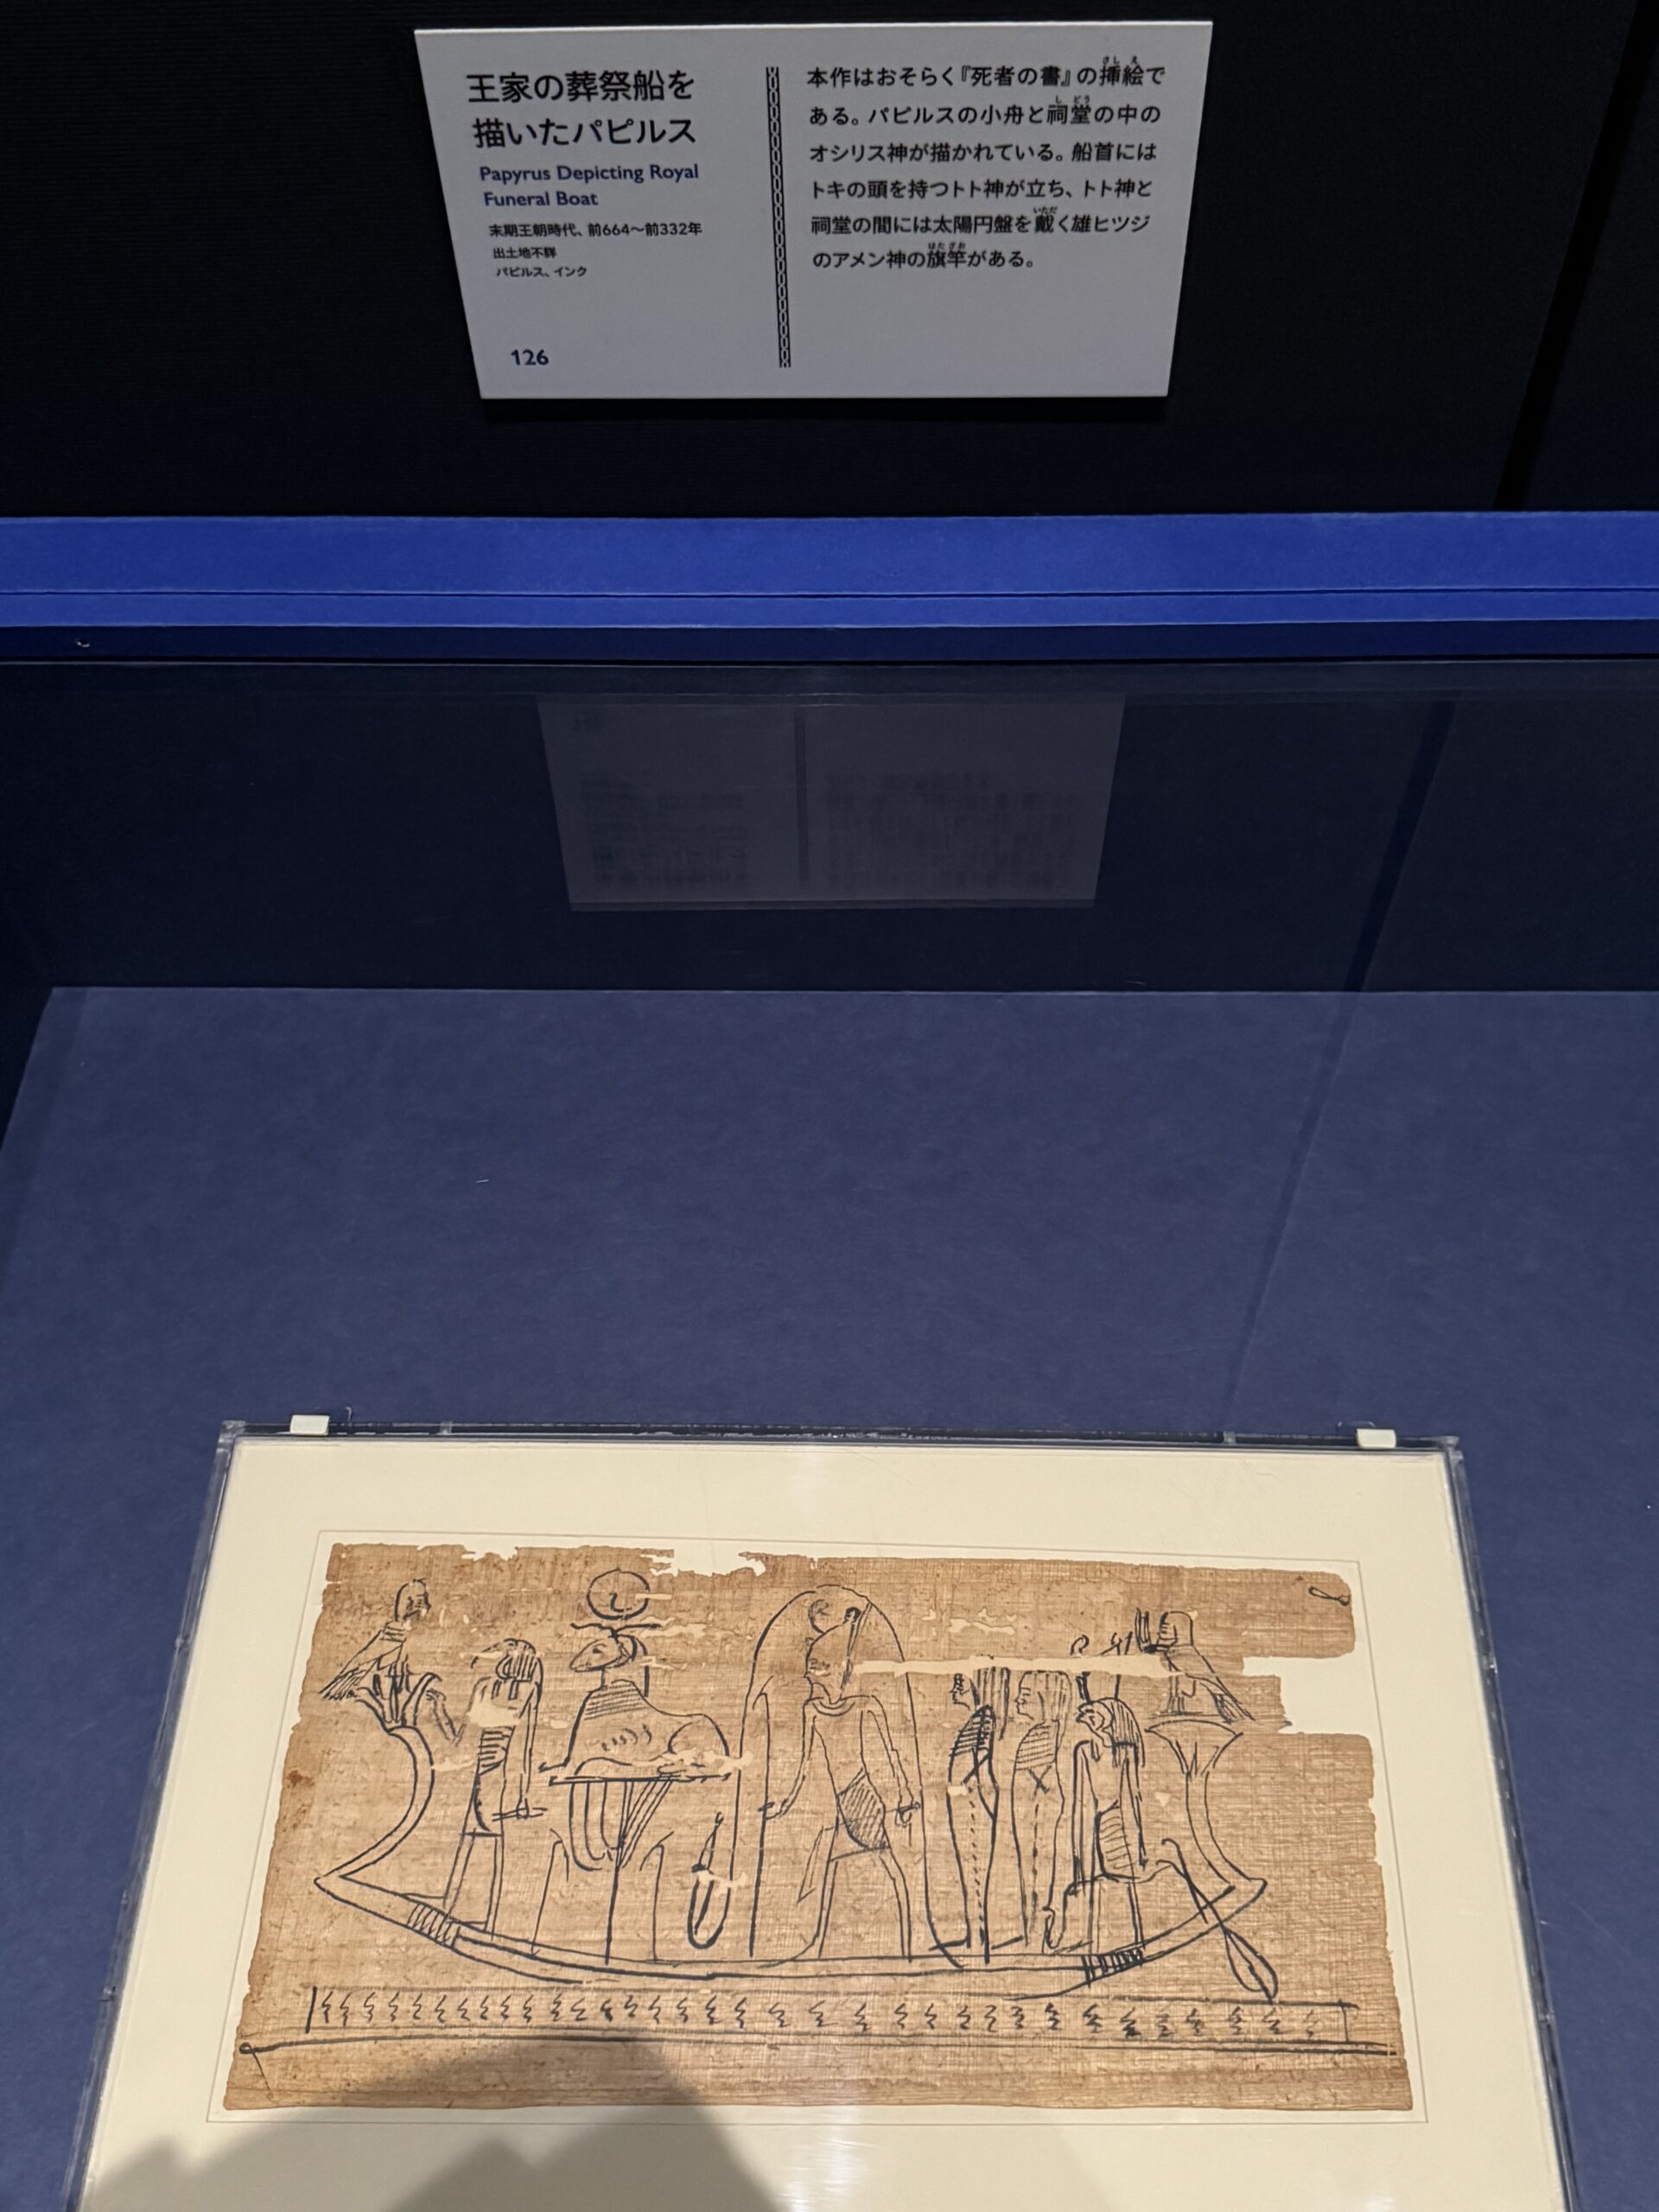 王家の葬祭船を
描いたパピルス
Papyrus Depicting Royal
Funeral Boat
末期王朝時代、前664〜前332年
出土地不詳
パピルス、インク
126
本作はおそらく『死者の書』の挿絵で
ある。パピルスの小舟と祠堂の中の
オシリス神が描かれている。船首には
トキの頭を持つトト神が立ち、トト神と
祠堂の間には太陽円盤を戴く雄ヒツジ
のアメン神の旗竿がある。